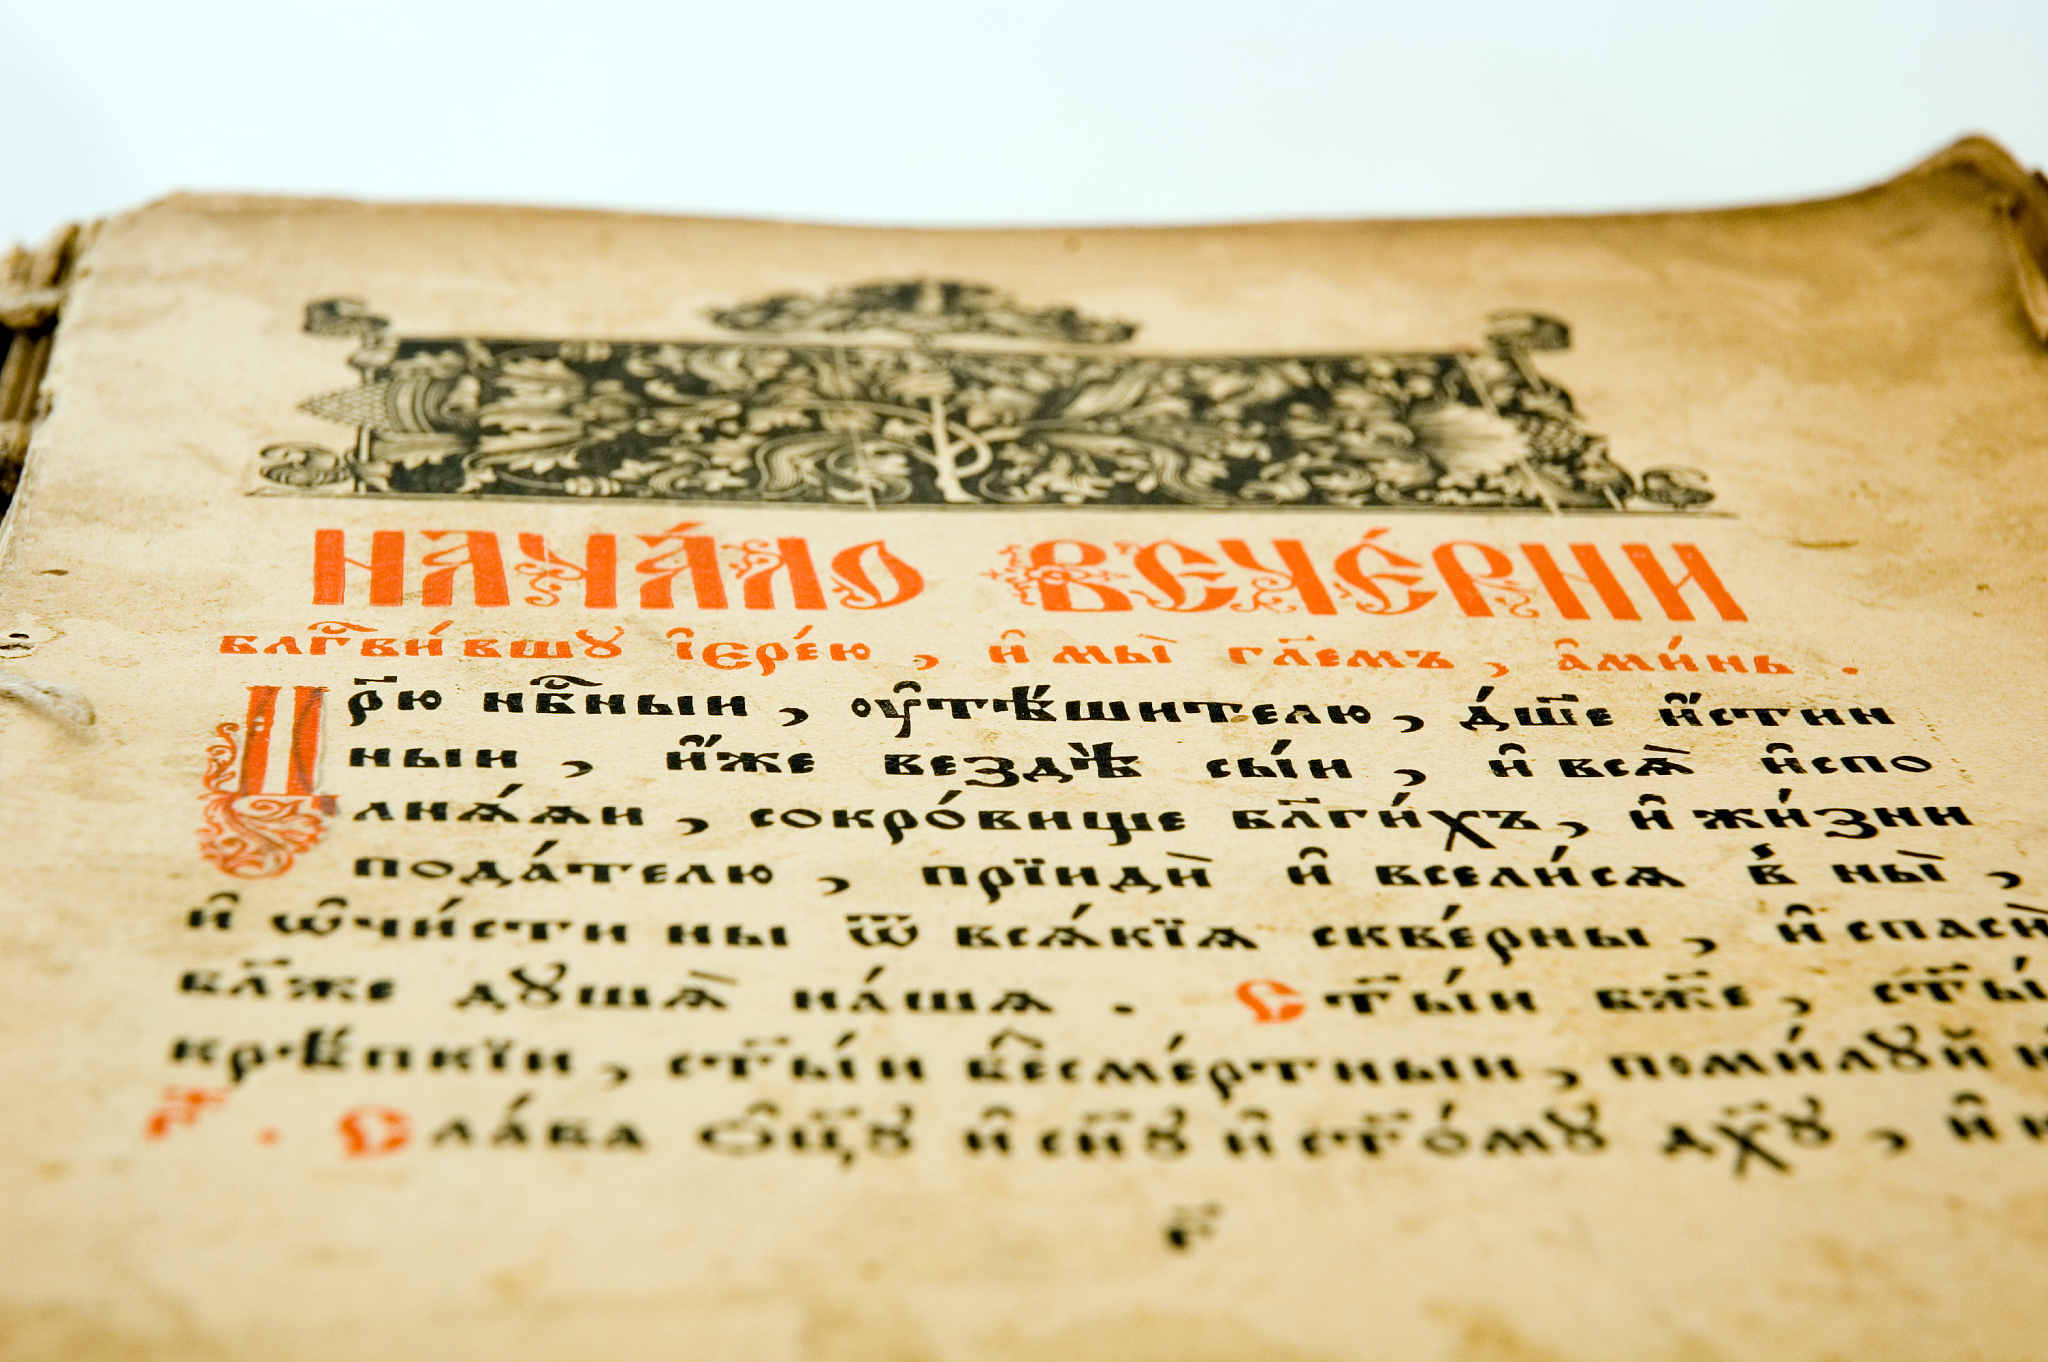 НАЧА́ЛО ВЕЧЕ́РНИ
бл҃гⷭ҇ви́вшꙋ і҆ере́ю, и҆ мы̀ гл҃емъ, а҆ми́нь.
Цр҃ю нбⷭ҇ныи, ᲂу҆тѣ́шителю, дш҃е и҆́стин
ныи, и҆́же вездѣ̀ сы́и, и҆ всѧ̀ и҆спо
лнѧ́ѧи, сокро́вище бл҃ги́хъ, и҆ жи́зни
пода́телю, прїидѝ и҆ всели́сѧ в́ ны̀,
и҆ ѡ҆чи́сти ны ѿ всѧ́кїѧ скве́рны, и҆ спасѝ
бл҃же дꙋшѧ̀ на́шѧ. Ст҃ы́и бж҃е, ст҃ы́
крѣ́пкїи, ст҃ы́и бе҆сме́ртныи, поми́лꙋй н
г҃. Сла́ва ѻ҆ц҃ꙋ и҆ сн҃ꙋ и҆ ст҃о́мꙋ дх҃ꙋ, и҆ н